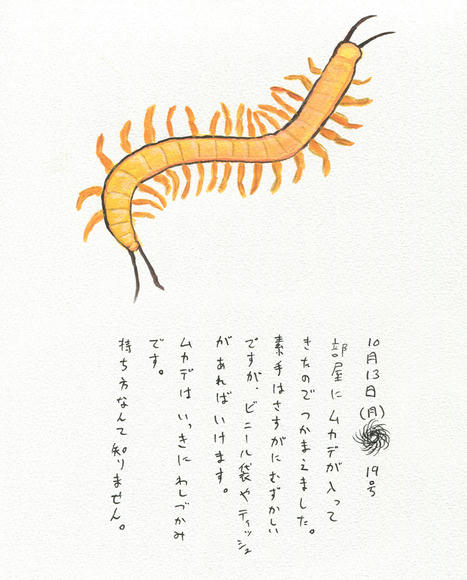 10月13日(月) 19号
部屋にムカデが入って
きたのでつかまえました。
素手はさすがにむずかしい
ですが、ビニール袋やティッシュ
があればいけます。
ムカデはいっきにわしづかみ
です。
持ち方なんて知りません。